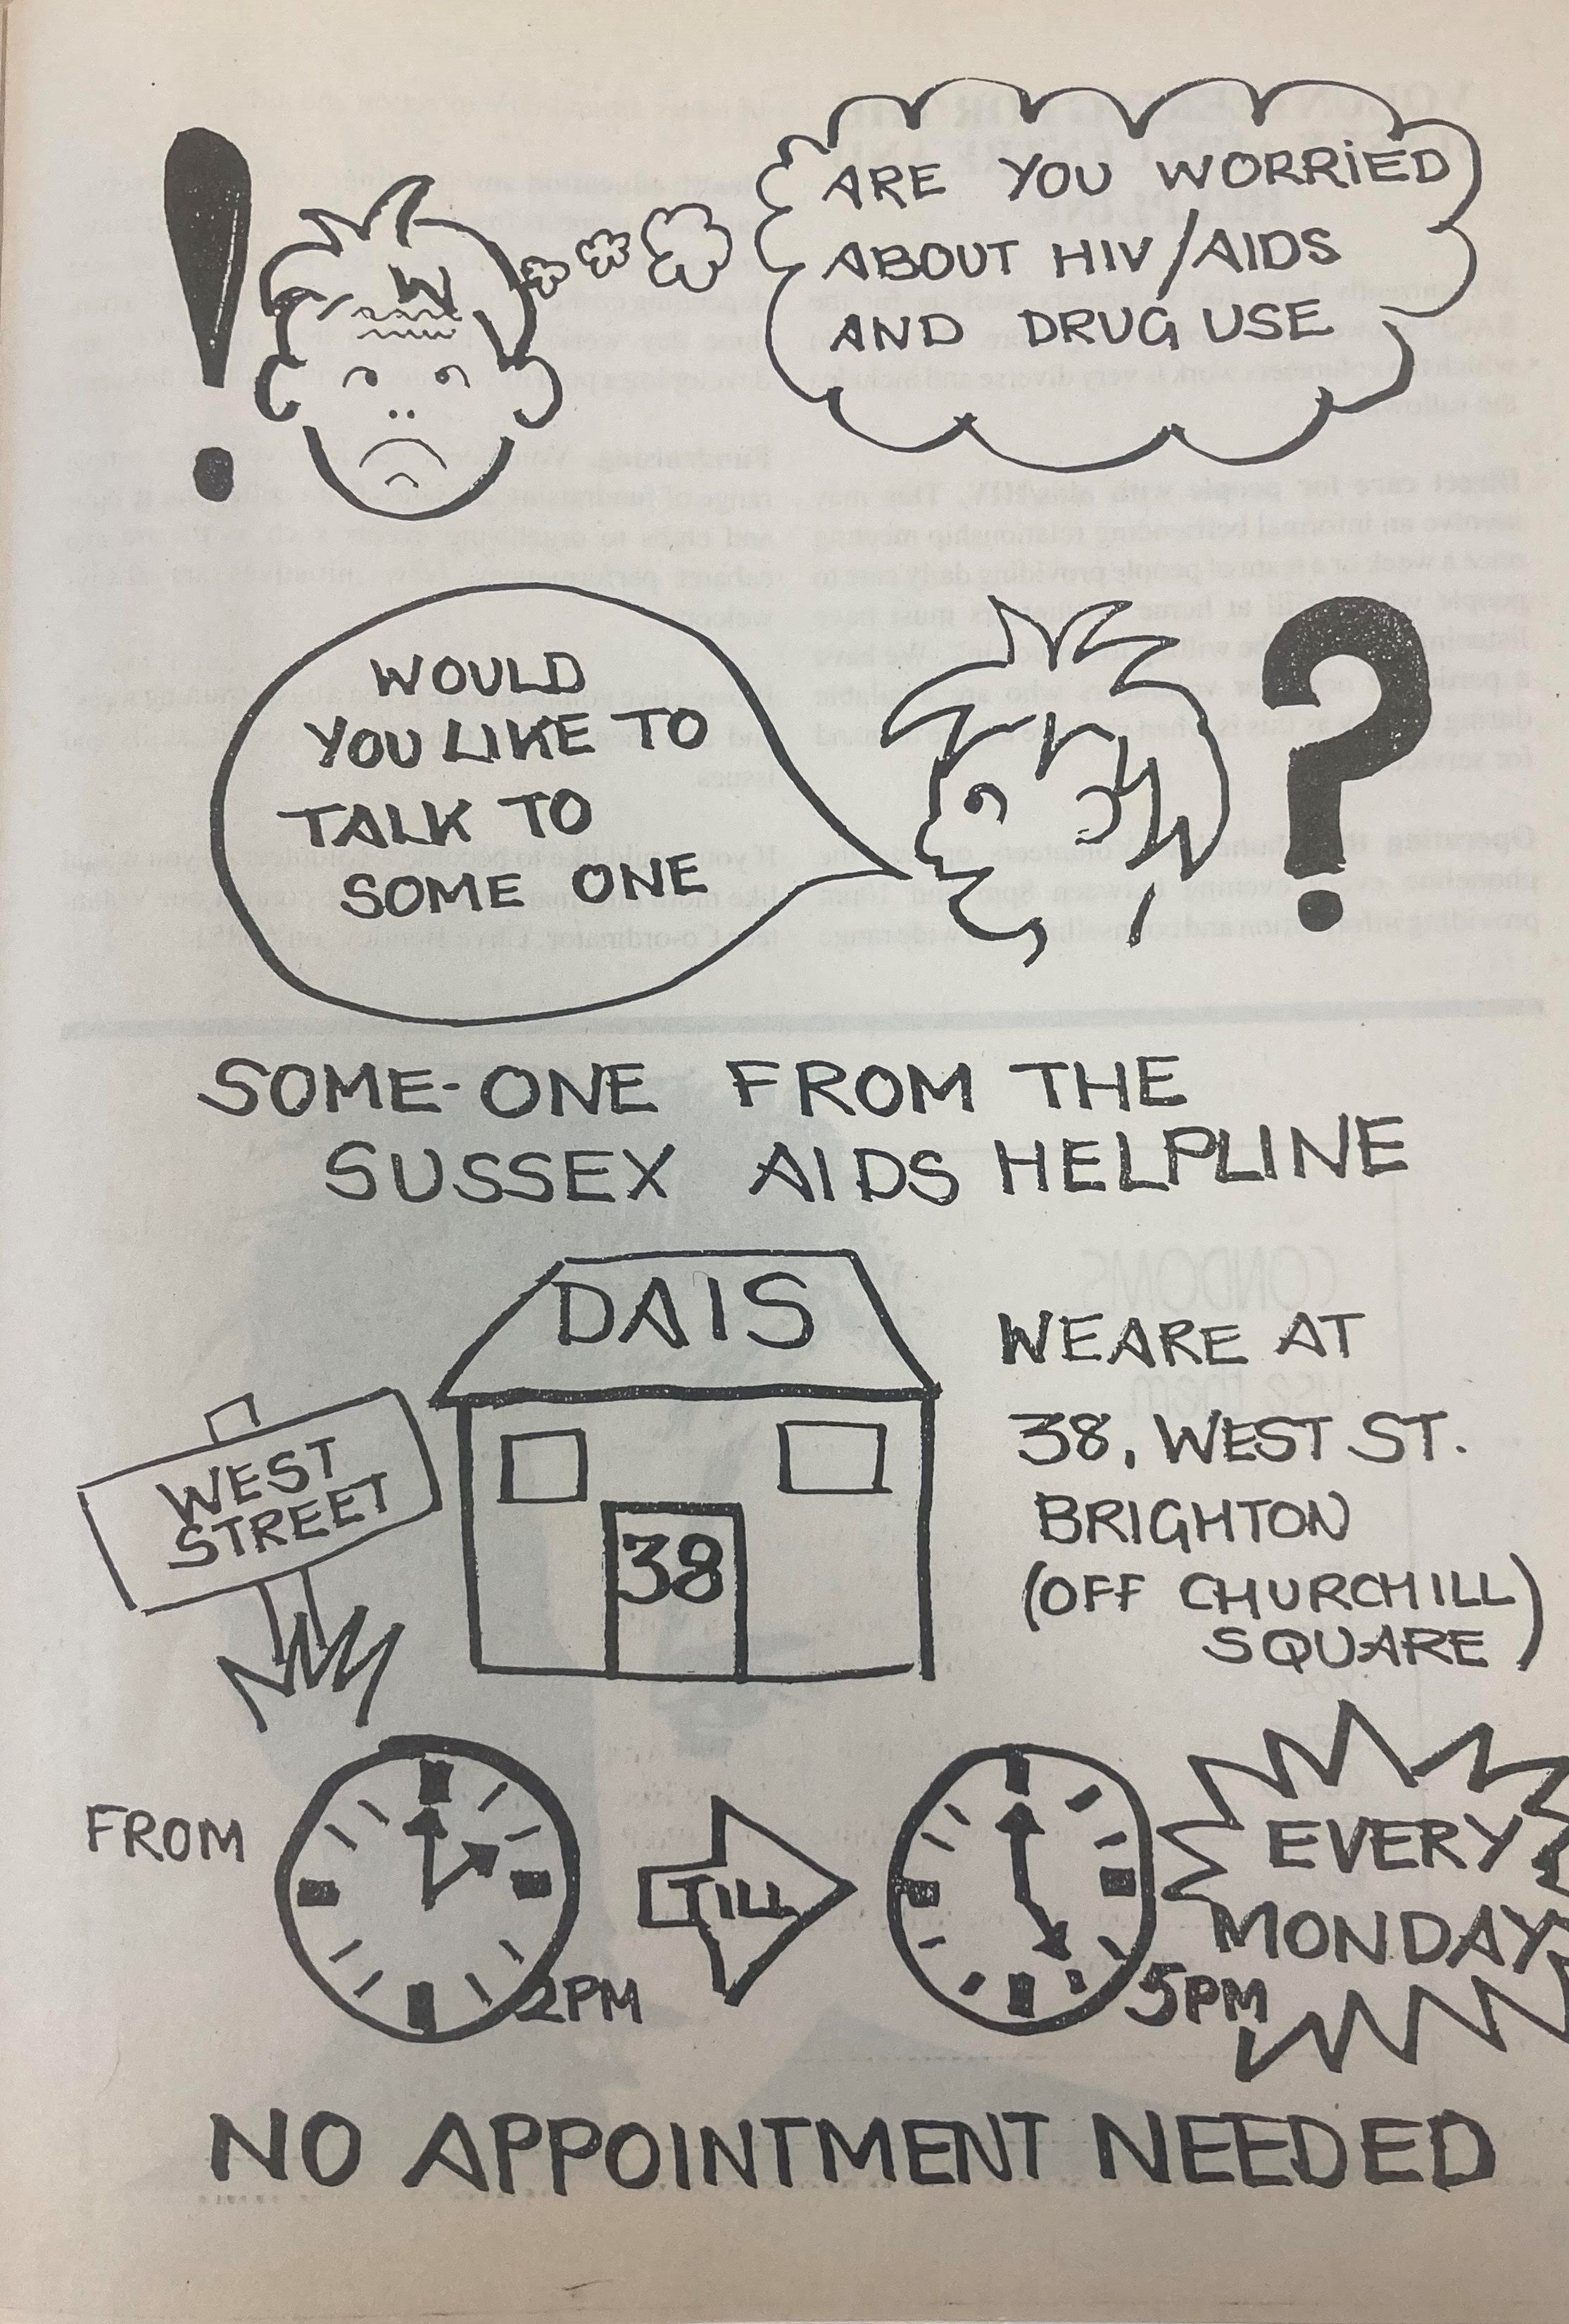 ARE YOU WORRIED
ABOUT HIV/AIDS
AND DRUG USE
!
WOULD
YOU LIKE TO
TALK TO
SOME ONE
?
SOME-ONE FROM THE
SUSSEX AIDS HELPLINE
DAIS
WEST
STREET
38
WE ARE AT
38, WEST ST.
BRIGHTON
(OFF CHURCHILL
SQUARE)
FROM
2PM
TILL
5PM
EVERY
MONDAY
NO APPOINTMENT NEEDED